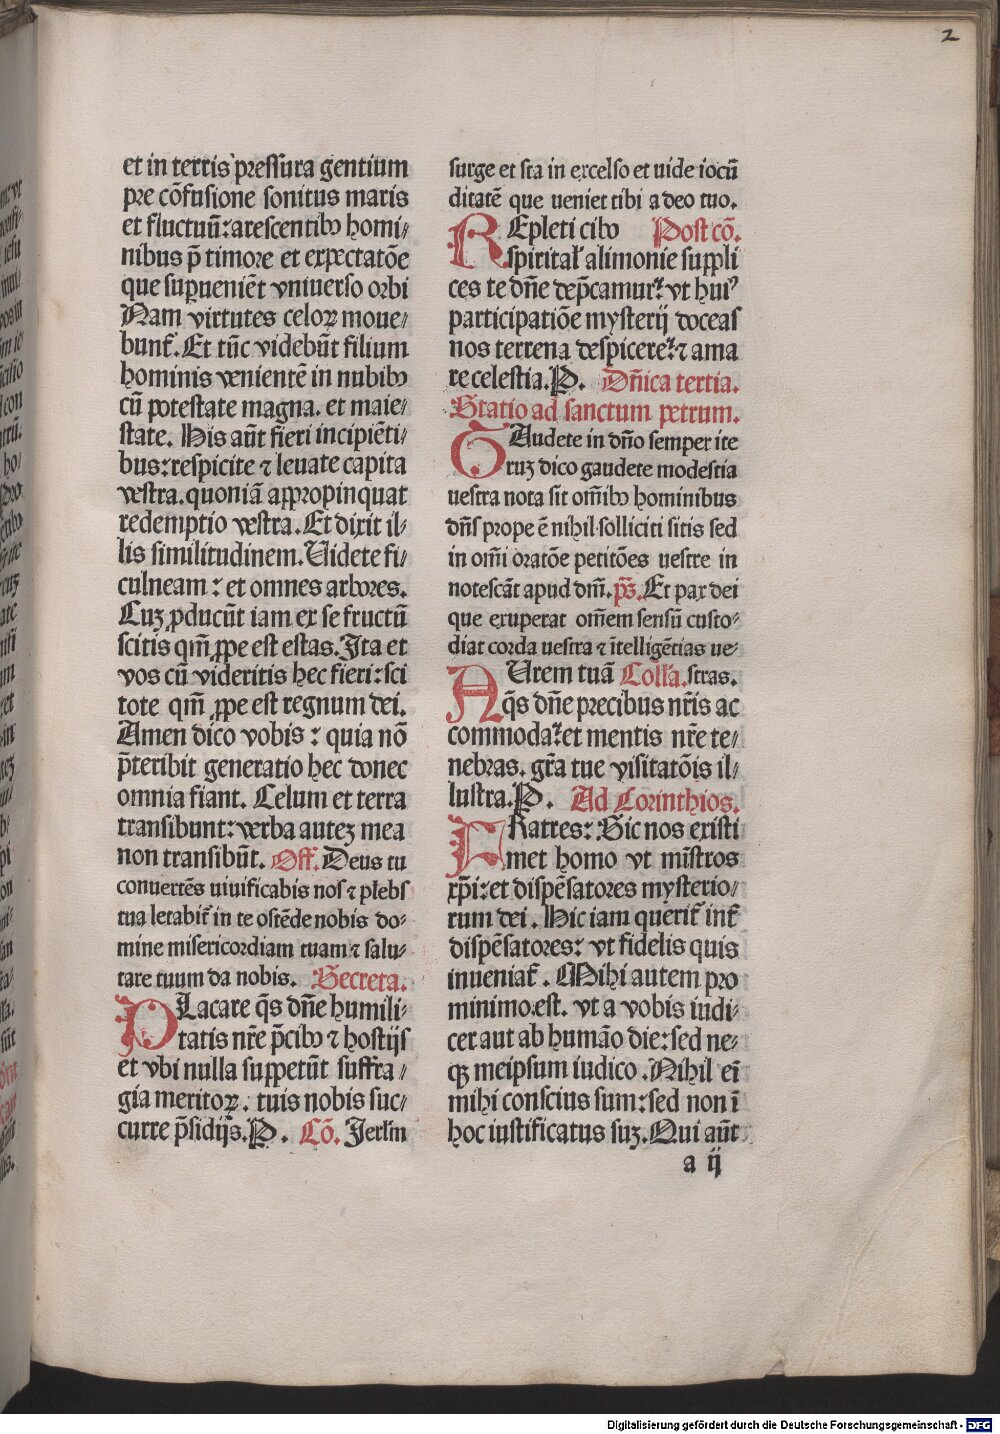 2
et in terris pressura gentium
pre cõfusione sonitus maris
et fluctuũ: arescentibꝰ homi⸗
nibus p̄ timore et expectatõe
que suꝑueniẽt vniuerso orbi
Nam virtutes celoꝝ moue⸗
bunt̃. Et tũc videbũt filium
hominis venientẽ in nubibꝰ
cũ potestate magna. et maie⸗
state. His aũt fieri incipiẽti⸗
bus: respicite ⁊ leuate capita
vestra. quoniã appropinquat
redemptio vestra. Et dixit il⸗
lis similitudinem. Uidete fi⸗
culneam: et omnes arbores.
Cuꝫ ꝓducũt iam ex se fructũ
scitis qm̃ ꝓpe est estas. Ita et
vos cũ videritis hec fieri: sci
tote qm̃ ꝓpe est regnum dei.
Amen dico vobis: quia nõ
p̄teribit generatio hec donec
omnia fiant. Celum et terra
transibunt: verba auteꝫ mea
non transibũt. Off. Deus tu
conuertẽs uiuificabis nos ⁊ plebs
tua letabit̃ in te ostẽde nobis do⸗
mine misericordiam tuam ⁊ salu⸗
tare tuum da nobis. Secreta.
PLacare q̃s dñe humili⸗
tatis nr̃e p̄cibꝰ ⁊ hostijs
et vbi nulla suppetũt suffra⸗
gia meritoꝝ. tuis nobis suc⸗
curre p̄sidijs. P. Cõ. Jerlm̃
surge et sta in excelso et uide iocũ
ditatẽ que ueniet tibi a deo tuo.
REpleti cibꝰ Post cõ.
spirital̃ alimonie suppli
ces te dñe dep̃camur: vt huiꝰ
participatiõe mysterij doceas
nos terrena despicere: ⁊ ama
re celestia. P. Dñica tertia.
Statio ad sanctum petrum.
GAudete in dño semper ite
ruꝫ dico gaudete modestia
uestra nota sit om̃ibꝰ hominibus
dñs prope ẽ nihil solliciti sitis sed
in om̃i oratõe petitões uestre in
notescãt apud dm̃. p̃s. Et pax dei
que exuperat om̃em sensũ custo⸗
diat corda uestra ⁊ ĩtelligẽtias ue⸗
AUrem tuã Coll'a. stras.
q̃s dñe precibus nr̃is ac
commoda: et mentis nr̃e te⸗
nebras. gr̃a tue visitatõis il⸗
lustra. P. Ad Corinthios.
FRatres: Sic nos existi
met homo vt mĩstros
xp̃i: et dispẽsatores mysterio⸗
rum dei. Hic iam querit̃ int̃
dispẽsatores: vt fidelis quis
inueniat̃. Mihi autem pro
minimo est. vt a vobis iudi⸗
cer aut ab humão die: sed ne⸗
qꝫ meipsum iudico. Nihil eĩ
mihi conscius sum: sed non ĩ
hoc iustificatus suꝫ. Qui aũt
a ij
Digitalisierung gefördert durch die Deutsche Forschungsgemeinschaft - DFG